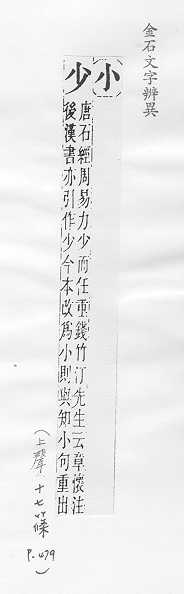 金石文字辨異
小
少
唐石經周易力少而任重錢竹汀先生云章懷注
後漢書亦引作少今本改爲小則與知小句重出
(上聲十七篠 P.479)